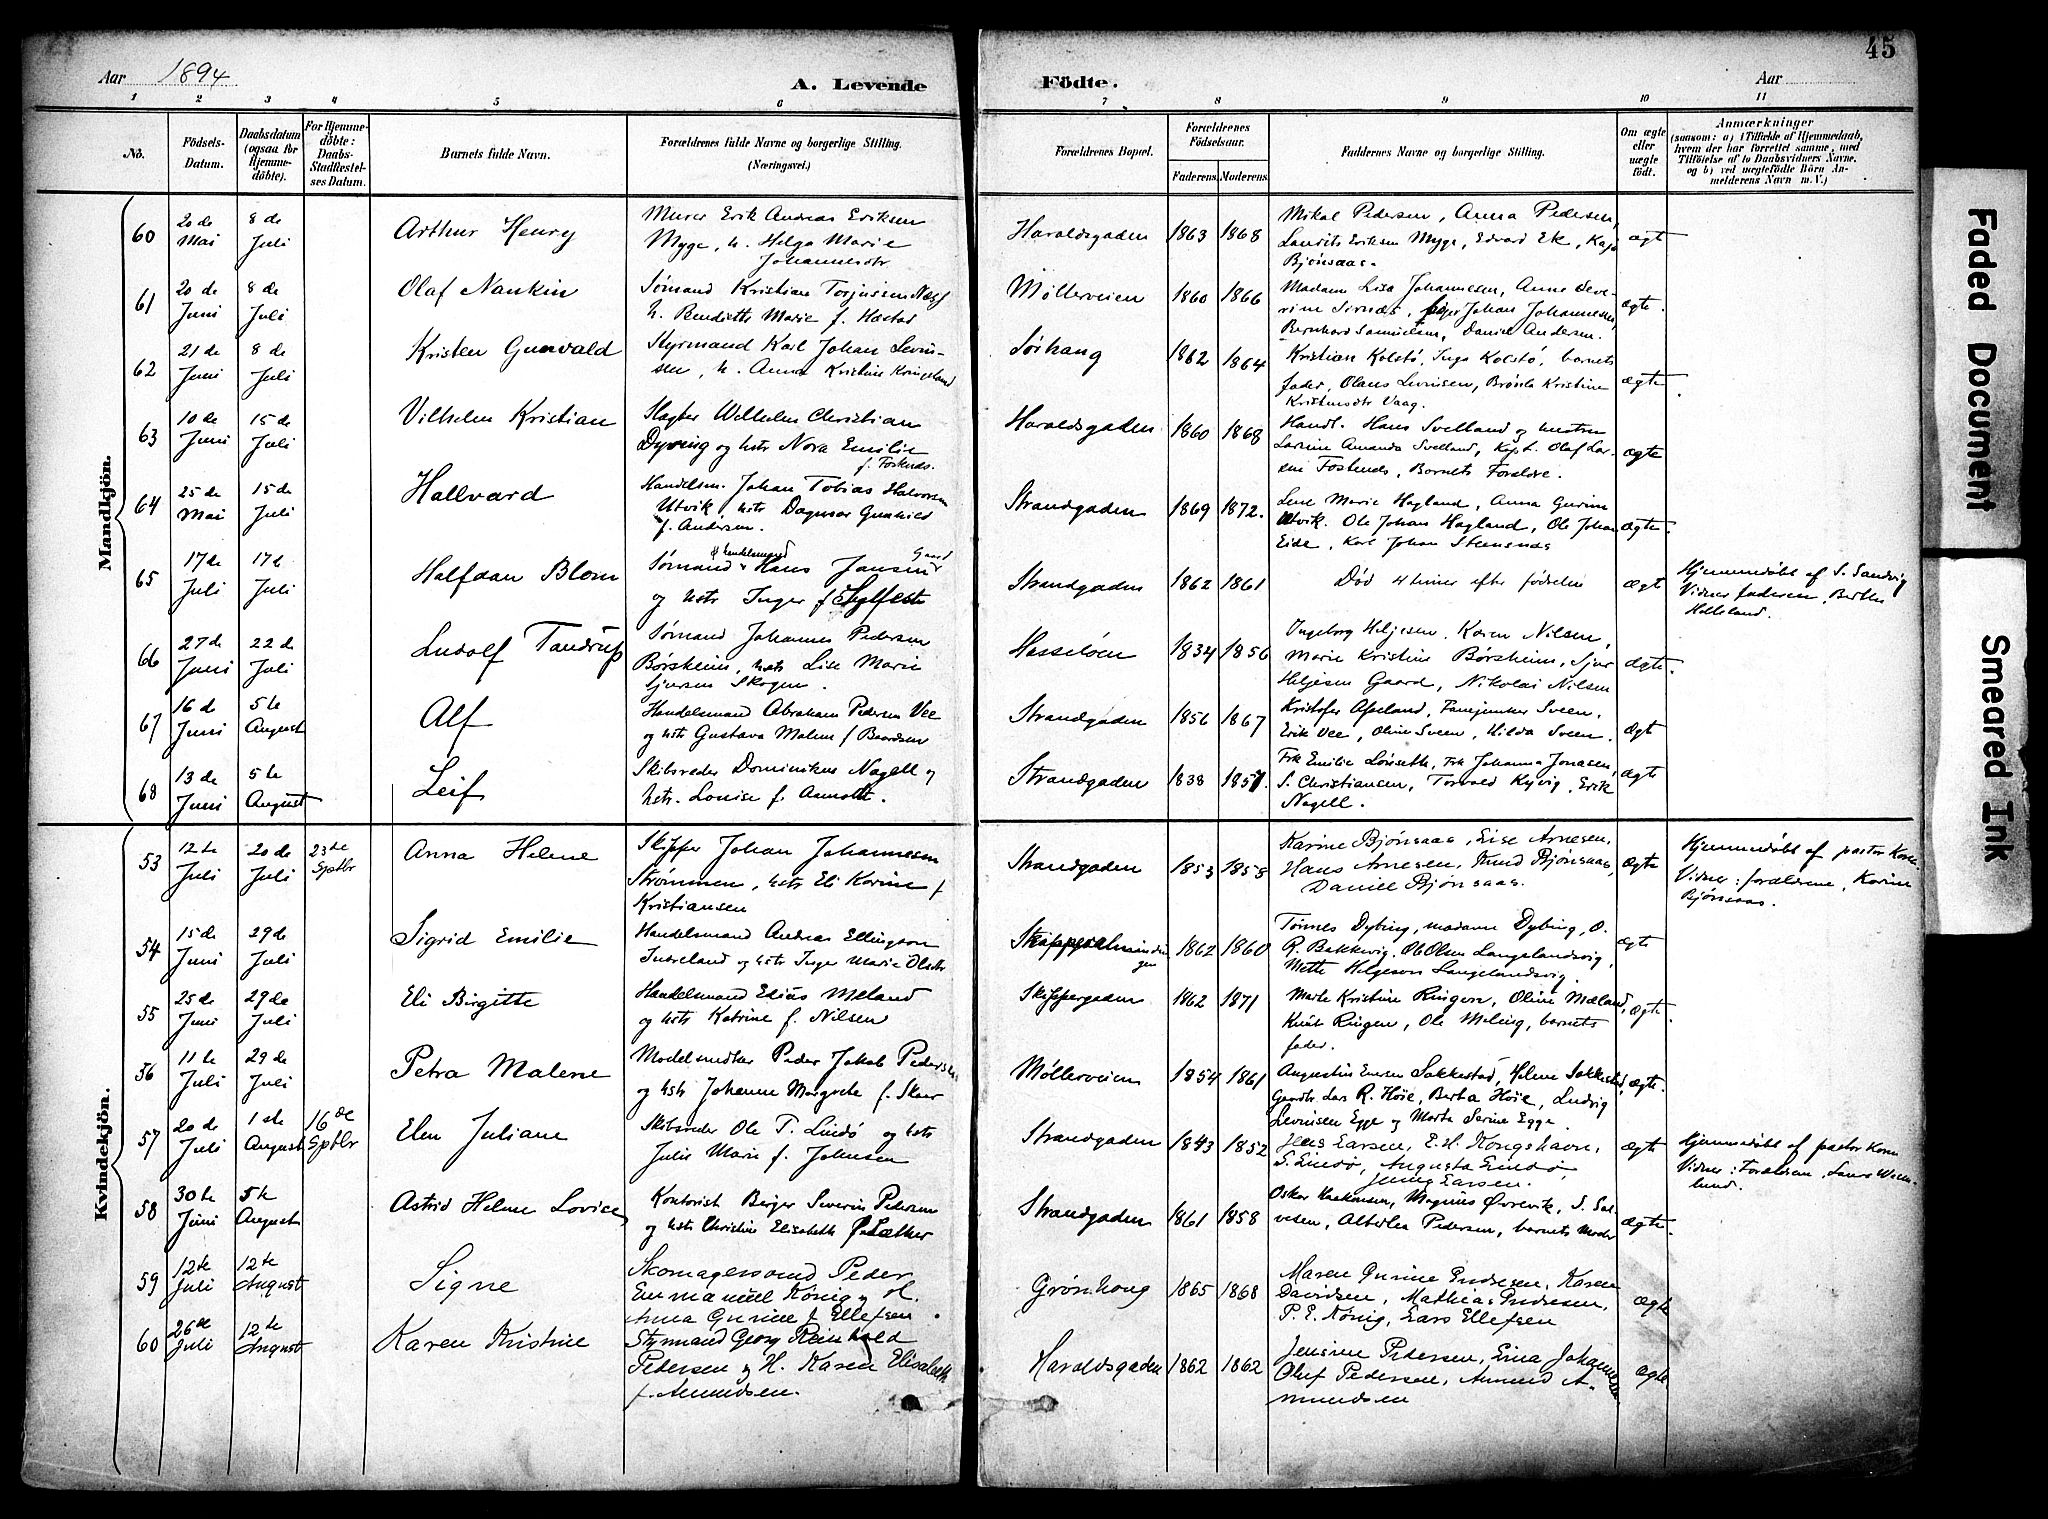 45
Aar 1894
A. Levende
Födte.
Aar
1 2 3 4 5 6 7 8 9 10 11
No.
Födsels-
Datum.
Daabsdatum
(ogsaa for
Hjemme-
döbte).
For Hjemme-
döbte:
Daabs-
Stadfæstel-
ses Datum.
Barnets fulde Navn.
Forældrenes fulde Navne og borgerlige Stilling.
(Næringsvei.)
Forældrenes Bopæl.
Forældrenes
Födselsaar.
Faderens. Moderens.
Faddernes Navne og borgerlige Stilling.
Om ægte
eller
uægte
født.
Anmærkninger
(saasom: a) i Tilfælde af Hjemmedaab,
hvem der har forrettet samme, med
Tilföielse af to Daabsvidners Navne,
og b) ved uægtefödte Börn An-
melderens Navn m. V.)
Mandkjön.
60
20de Mai
8de Juli
Arthur Henry
Murer Erik Andreas Eriksen
Myge, h. Helga Marie
Johannesdtr
Haraldsgaden
1863 1868
Mikal Pedersen, Anna Pedersen,
Laurits Eriksen Myge, Edvard Ek, Kaja
Bjönsaas.
ægt
61
20de Juni
8de Juli
Olaf Nankin
Sømand Kristian Torjussen Næss
h. Bendikte Marie f. Hastad
Møllerveien
1860 1866
Madam Lisa Johannesen, Anne Seve-
rine Sirnæs, Johan Johannesen,
Bernhard Samuelsen, Daniel Andersen.
ægte.
62
21de Juni
8de Juli
Kristen Gunvald
Styrmand Karl Johan Levin-
sen, h. Anna Kristine Kringeland
Sörhaug
1862 1864
Kristian Kolstø, Inga Kolstø, barnets
fader, Olaus Levinsen, Brønla Kristine
Kristensdtr Vaag.
ægte
63
10de Juni
15de Juli
Vilhelm Kristian
Slagter Wilhelm Christian
Dyring og hstr Nora Emilie
f. Fosknæs.
Haraldsgaden
1860 1868
Handl. Hans Svelland og hustru
Lavine Amanda Svelland, Kapt. Olaf Lar-
sen Fosknæs, Barnets Forældre.
ægte
64
25de Mai
15de Juli
Hallvard
Handelsm. Johan Tobias Halvorsen
Utvik, hstr Dagmar Gunhild
f. Andersen.
Strandgaden
1869 1872.
Lene Marie Hagland, Anna Gurine
Utvik. Ole Johan Hagland, Ole Johan
Eide, Karl Johan Steensnæs
ægte.
65
17de Juli
17de Juli
Halfdan Blom
Handelsmand Gaard
Sømand Hans Jansen
og hstr Inger f. Sylfest
Strandgaden
1862 1861
Død 4 timer efter fødselen
ægt
Hjemmedøbt af S. Sandvig
Vidner faderen, Berthe
Helleland.
66
27de Juni
22de Juli
Ludolf Tandrup
Sømand Johannes Pedersen
Børsheim, hstr Lise Marie
Sjursen Skogen.
Hasseløen
1834 1856
Ingeborg Heljesen, Karen Nilsen,
Marie Kristine Børsheim, Sjur
Heljesen Gaard, Nikolai Nilsen
ægte.
67
16de Juni
5te August
Alf
Handelsmand Abraham Pedersen Vee
og hstr Gustava Malene f Baardsen
Strandgaden
1856 1867
Kristofer Apeland, Fanejunker Sveen,
Erik Vee, Oline Sveen, Hilda Sveen.
ægt
68
13de Juni
5te August
Leif
Skibsreder Dominikus Nagell og
hstr. Louise f. Annothe.
Strandgaden
1838 1851.
Frk Emilie Lønseth, Frk Johanna Jonasen,
S. Christiansen, Torvald Kyvig, Erik
Nagell.
ægt
Kvindekjön.
53
12te Juli
20de Juli
23de Septbr
Anna Helene
Skipper Johan Johannesen
Strømmen, hstr Eli Karine f
Kristiansen
Strandgaden
1853 1858
Karine Bjønsaas, Lise Arnesen,
Hans Arnesen, Knud Bjønsaas,
Daniel Bjønsaas.
ægte
Hjemmedøbt af pastor Koren
Vidner: forældrene, Karine
Bjønsaas.
54
15de Juni
29de Juli
Sigrid Emilie
Handelsmand Andreas Ellingsen
Indreland og hstr Inger Marie Olsdtr
1862 1860
Tønnes Dybing, madam Dybing, O.
R. Bakkevig, Ole Olsen Langelandsvig,
Mette Helgesen Langelandsvig
ægt
55
25de Juni
29de Juli
Eli Birgitte
Handelsmand Edias Meland
og hstr Katrine f. Nilsen
Skippergaden
1862 1871
Marte Kristine Ringen, Oline Mæland,
Knut Ringen, Ole Meling, barnets
fader.
ægte.
56
11te Juli
29de Juli
Petra Malene
Modelsnedker Peder Jakob Pedersen
og hstr Johanne Margrete f. Skaar
Møllerveien
1854 1861
Augustin Enersen Sakkestad, Helene Sakkestad,
Gaardbr Lars R. Høie, Berta Høie, Ludvig
Levinsen Egge og Marta Serine Egge.
ægte.
57
20de Juli
1ste August
16de Septbr
Elen Juliane
Skibsreder Ole T. Lindø og hstr
Julie Marie f. Johnsen
Strandgaden
1843 1852
Jens Larsen, E. H. Kongshavn,
S. Lindø, Augusta Lindø
Jenny Larsen.
ægt
Hjemmedøbt af pastor Koren
Vidner: Forældrene,
58
30te Juni
5te August
Astrid Helene Lovise
Kontorist Berger Severin Pedersen
og hstr Christine Elisabeth f. Sæther
Strandgaden
1861 1858
Oskar Haakonsen, Magnus Øvrevik, S. Sal-
vesen, Alvilda Pedersen, barnets Moder
ægte.
59
12te Juli
12te August
Signe
Skomagersvend Peder
Emmanuel König og H.
Anna Gurine f. Ellefsen.
Grønhaug
1865 1868
Maren Gurine Endresen, Karen
Davidsen, Mathias Endresen,
P. E. König, Lars Ellefsen
ægte
60
26de Juli
12te August
Karen Kristine
Styrmand Georg Reinhold
Pedersen og H. Karen Elisabeth
f. Amundsen.
Haraldsgaden
1862 1862
Jensine Pedersen, Lina Johannesen
Oluf Pedersen, Amund A-
mundsen
ægte
Faded Document
Smeared Ink